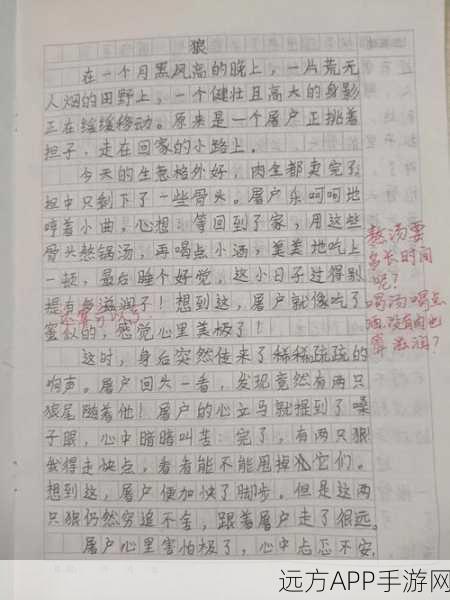 狼
在一个月黑风高的晚上，一片荒无
人烟的田野上，一个健壮且高大的身影
正在缓缓移动。原来是一个屠户正挑着
担子，走在回家的小路上。
今天的生意格外好，肉全都卖完了，
担中只剩下了一些骨头。屠户乐呵呵地
哼着小曲，心想：等回到了家，用这些
骨头熬锅汤，再喝点小酒，美美地吃上
一顿，最后睡个好觉，这小日子过得别
提有多滋润了！想到这，屠户就像吃了
蜜似的，感觉心里美极了！
这时，身后突然传来了稀稀疏疏的
响声。屠户回头一看，发现竟然有两只
狼尾随着他！屠户的心立马就提到了嗓
子眼，心中暗暗叫苦：完了，有两只狼
我得走快点，看看能不能甩掉它们。
想到这，屠户便加快了脚步。但是这两
只狼仍然穷追不舍，跟着屠户走了很远。
屠户心里害怕极了，心中忐忑不安，
熬汤要
多长时间
呢？
喝汤喝点
酒，没有肉也
算滋润？
远方APP手游网